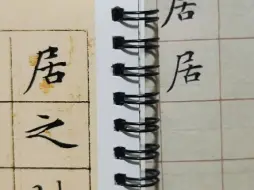 居
之
居
居